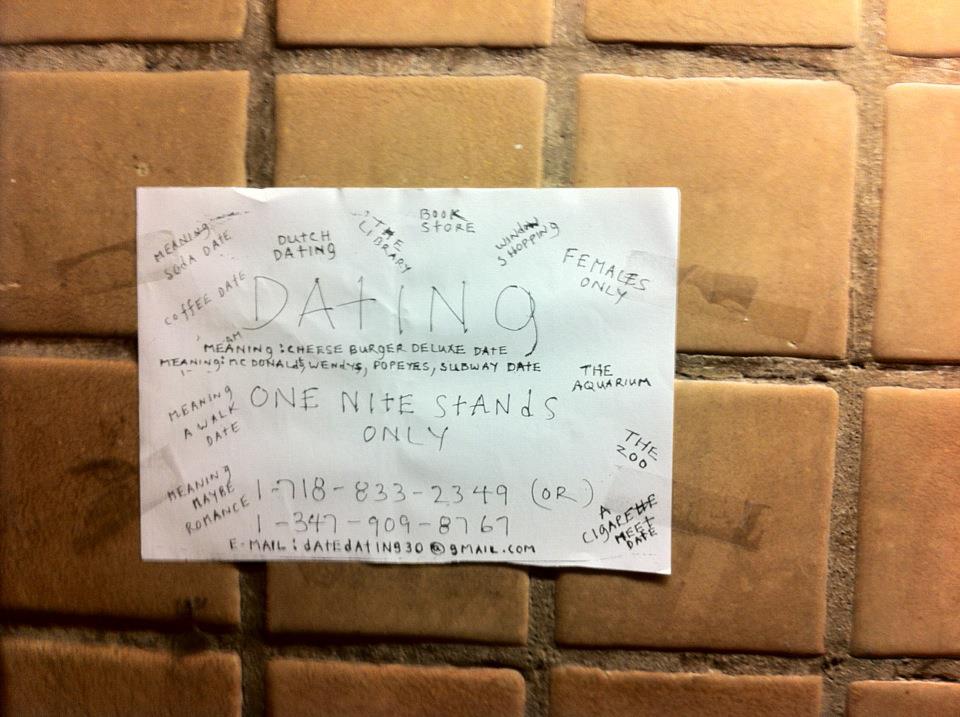 MEANING
SODA DATE
DUTCH
DATING
THE
LIBRARY
BOOK
STORE
WINDOW
SHOPPING
FEMALES
ONLY
COFFEE DATE
DATINg
AM
MEANINg : CHEESE BURGER DELUXE DATE
MEANINg: MC DONALdS, WENdYS, POPEYES, SUBWAY DATE
THE
AQUARIUM
MEANINg
A WALK
DATE
ONE NItE StANdS
ONLY
THE
ZOO
MEANINg
MAYBE
ROMANCE
1-718-833-2349 (OR)
1-347-909-8767
A
CIGAREttE
MEET
DATE
E-MAIL : dAtEdAtINg30@gMAIL.COM